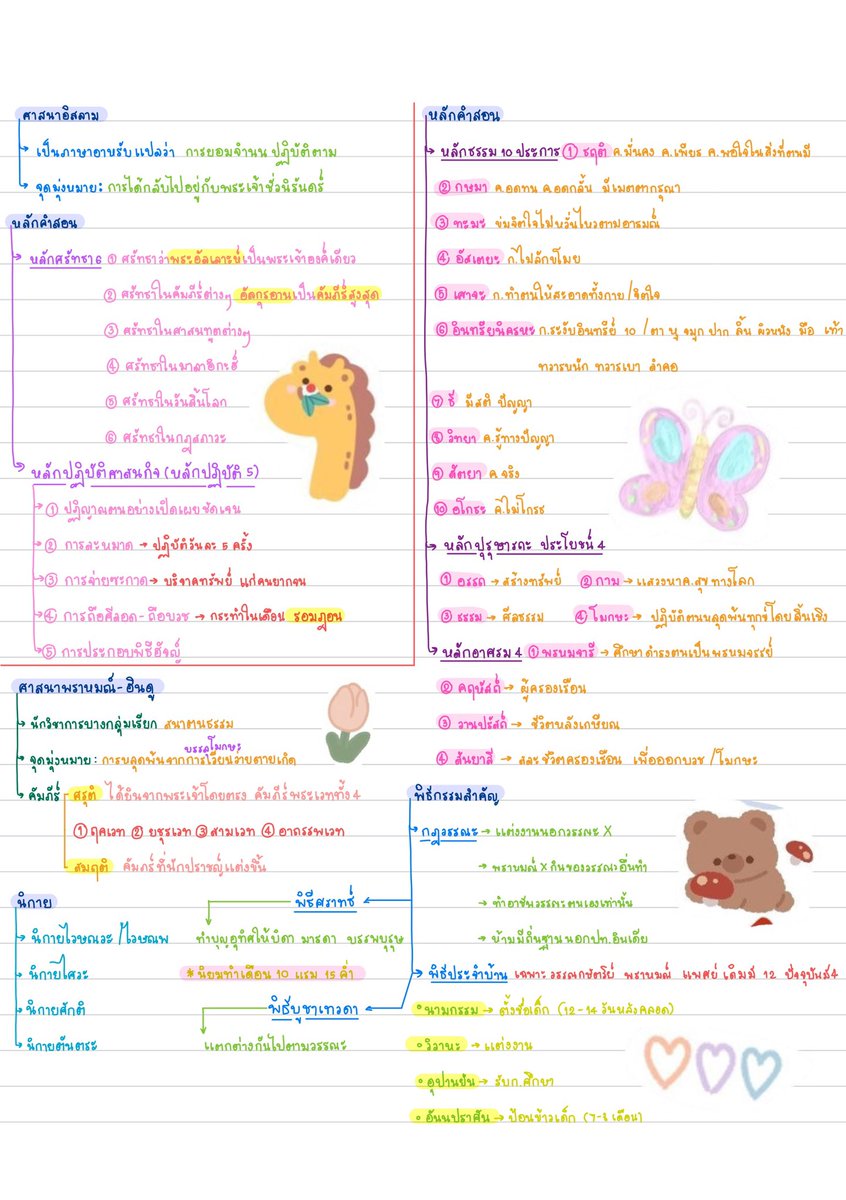 ศาสนาอิสลาม
เป็นภาษาอาหรับ แปลว่า การยอมจำนน ปฏิบัติตาม
จุดมุ่งหมาย: การได้กลับไปอยู่กับพระเจ้าชั่วนิรันดร์
หลักคำสอน
หลักศรัทธา 6 ① ศรัทธาว่าพระอัลเลาะห์เป็นพระเจ้าองค์เดียว
② ศรัทธาในคัมภีร์ต่างๆ อัลกุรอานเป็นคัมภีร์สูงสุด
③ ศรัทธาในศาสนทูตต่างๆ
④ ศรัทธาในมาลาอิกะฮ์
⑤ ศรัทธาในวันสิ้นโลก
⑥ ศรัทธาในกฎสภาวะ
หลักปฏิบัติศาสนกิจ (หลักปฏิบัติ 5)
① ปฏิญาณตนอย่างเปิดเผยชัดเจน
② การละหมาด → ปฏิบัติวันละ 5 ครั้ง
③ การจ่ายซะกาต → บริจาคทรัพย์ แก่คนยากจน
④ การถือศีลอด - ถือบวช → กระทำในเดือน รอมฎอน
⑤ การประกอบพิธีฮัจญ์
ศาสนาพราหมณ์ - ฮินดู
นักวิชาการบางกลุ่มเรียก สนาตนธรรม
บรรลุโมกษะ
จุดมุ่งหมาย: การหลุดพ้นจากการเวียนว่ายตายเกิด
คัมภีร์ ศรุติ ได้ยินจากพระเจ้าโดยตรง คัมภีร์พระเวททั้ง 4
① ฤคเวท ② ยชุรเวท ③ สามเวท ④ อาถรรพเวท
สมฤติ คัมภร์ที่นักปราชญ์แต่งขึ้น
นิกาย
นิกายไวษณวะ / ไวษณพ
นิกายไศวะ
นิกายศักติ
นิกายตันตระ
พิธีศราทธ์
ทำบุญอุทิศให้บิดา มารดา บรรพบุรุษ
* นิยมทำเดือน 10 แรม 15 ค่ำ
พิธีบูชาเทวดา
แตกต่างกันไปตามวรรณะ
หลักคำสอน
หลักธรรม 10 ประการ ① ธฤติ ค.มั่นคง ค.เพียร ค.พอใจในสิ่งที่ตนมี
② กษมา ค.อดทน ค.อดกลั้น มีเมตตากรุณา
③ ทะมะ ข่มจิตใจไม่หวั่นไหวตามอารมณ์
④ อัสเตยะ ก.ไม่ลักขโมย
⑤ เศาจะ ก.ทำตนให้สะอาดทั้งกาย / จิตใจ
⑥ อินทรียนิครหะ ก.ระงับอินทรีย์ 10 / ตา หู จมูก ปาก ลิ้น ผิวหนัง มือ เท้า
ทวารหนัก ทวารเบา ลำคอ
⑦ ธี มีสติ ปัญญา
⑧ วิทยา ค.รู้ทางปัญญา
⑨ สัตยา ค.จริง
⑩ อโกธะ ค.ไม่โกรธ
หลักปุรุษารถะ ประโยชน์ 4
① อรรถ → สร้างทรัพย์ ② กาม → แสวงหาค.สุขทางโลก
③ ธรรม → ศีลธรรม ④ โมกษะ → ปฏิบัติตนหลุดพ้นทุกข์โดยสิ้นเชิง
หลักอาศรม 4 ① พรหมจารี → ศึกษา ดำรงตนเป็นพรหมจรรย์
② คฤหัสถ์ → ผู้ครองเรือน
③ วานปรัสถ์ → ชีวิตหลังเกษียณ
④ สันยาสี → สละชีวิตครองเรือน เพื่อออกบวช / โมกษะ
พิธีกรรมสำคัญ
กฎวรรณะ → แต่งงานนอกวรรณะ X
→ พราหมณ์ X กินของวรรณะอื่นทำ
→ ทำอาชีพวรรณะตนเองเท่านั้น
→ ห้ามมีถิ่นฐานนอกปท.อินเดีย
พิธีประจำบ้าน เฉพาะวรรณกษัตริย์ พราหมณ์ แพศย์ เดิมมี 12 ปัจจุบันมี 4
นามกรรม → ตั้งชื่อเด็ก (12 - 14 วันหลังคลอด)
วิวาหะ → แต่งงาน
อุปานยัน → รับก.ศึกษา
อันนปราศัน → ป้อนข้าวเด็ก (7-8 เดือน)